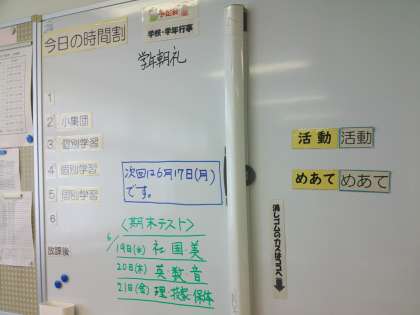 今日の時間割
学校・学年行事
学年朝礼
1
2 小集団
3 個別学習
4 個別学習
5 個別学習
6
放課後
次回は6月17日(月)
です。
<期末テスト>
6/19日(水) 社国美
20日(木) 英数音
21日(金) 理技家保体
活動 活動
めあて めあて
消しゴムのカスはココへ